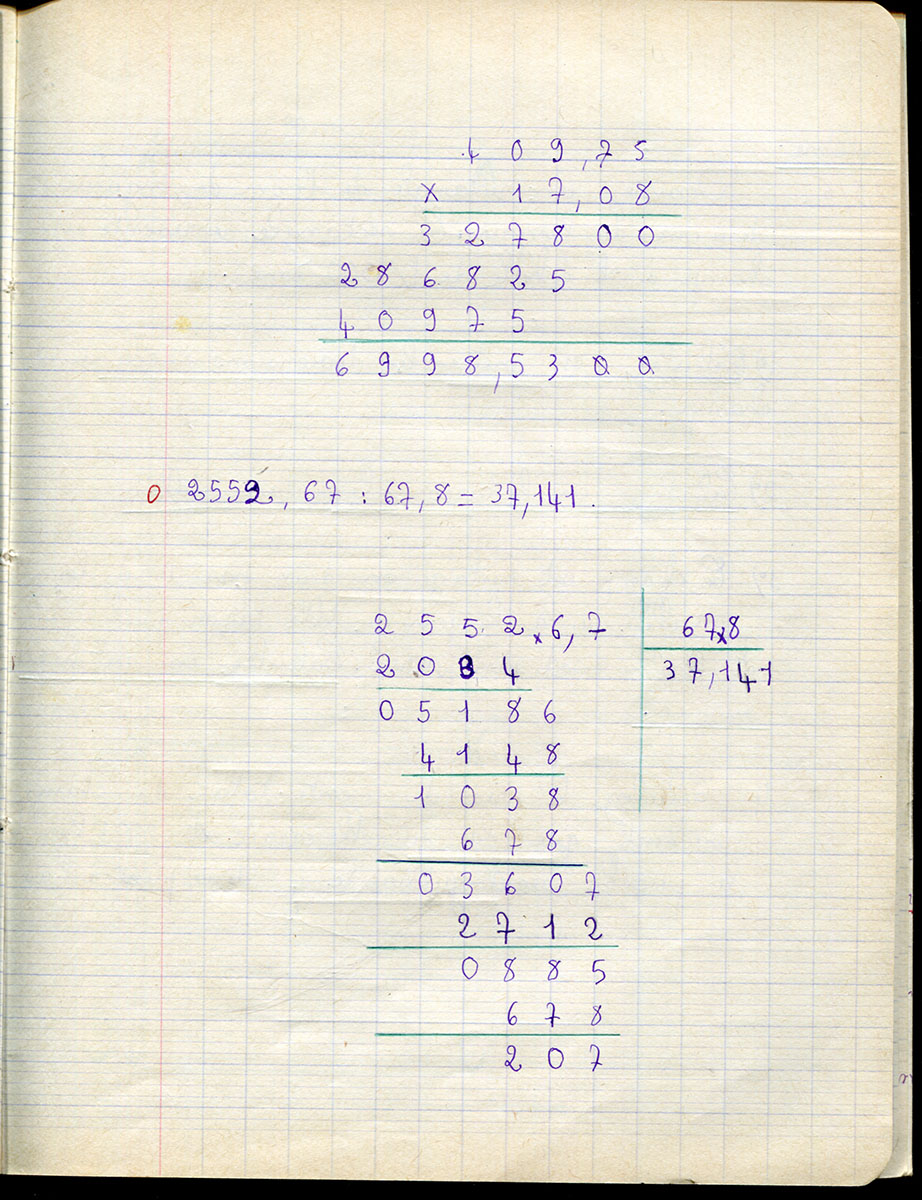 409,75
x 17,08
327800
286825
40975
6998,5300
0 2552,67 : 67,8 = 37,141.
2552x6,7 67x8
2034 37,141
05186
4148
1038
678
03607
2712
0885
678
207